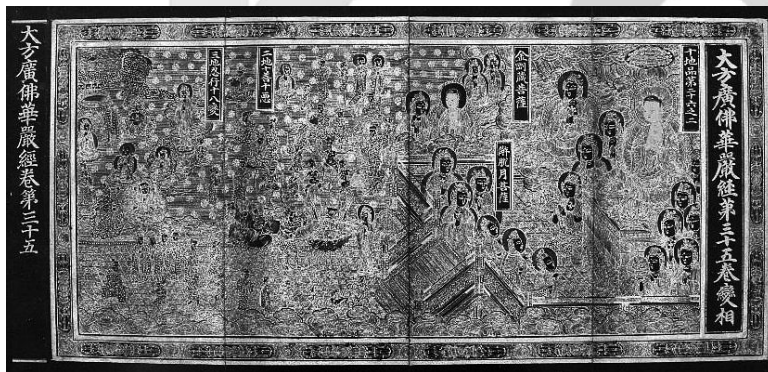 大方廣佛華嚴經第三十五卷變相
十地品第二十六之二
金剛藏菩薩
解脫月菩薩
二地十善十惡
三地忍行十八變
大方廣佛華嚴經卷第三十五